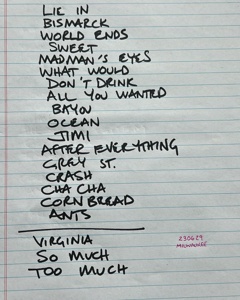 LIE IN
BISMARCK
WORLD ENDS
SWEET
MADMAN'S EYES
WHAT WOULD
DON'T DRINK
ALL YOU WANTED
BAYOU
OCEAN
JIMI
AFTER EVERYTHING
GREY ST.
CRASH
CHA CHA
CORNBREAD
ANTS
VIRGINIA
SO MUCH
TOO MUCH
230629
MILWAUKEE